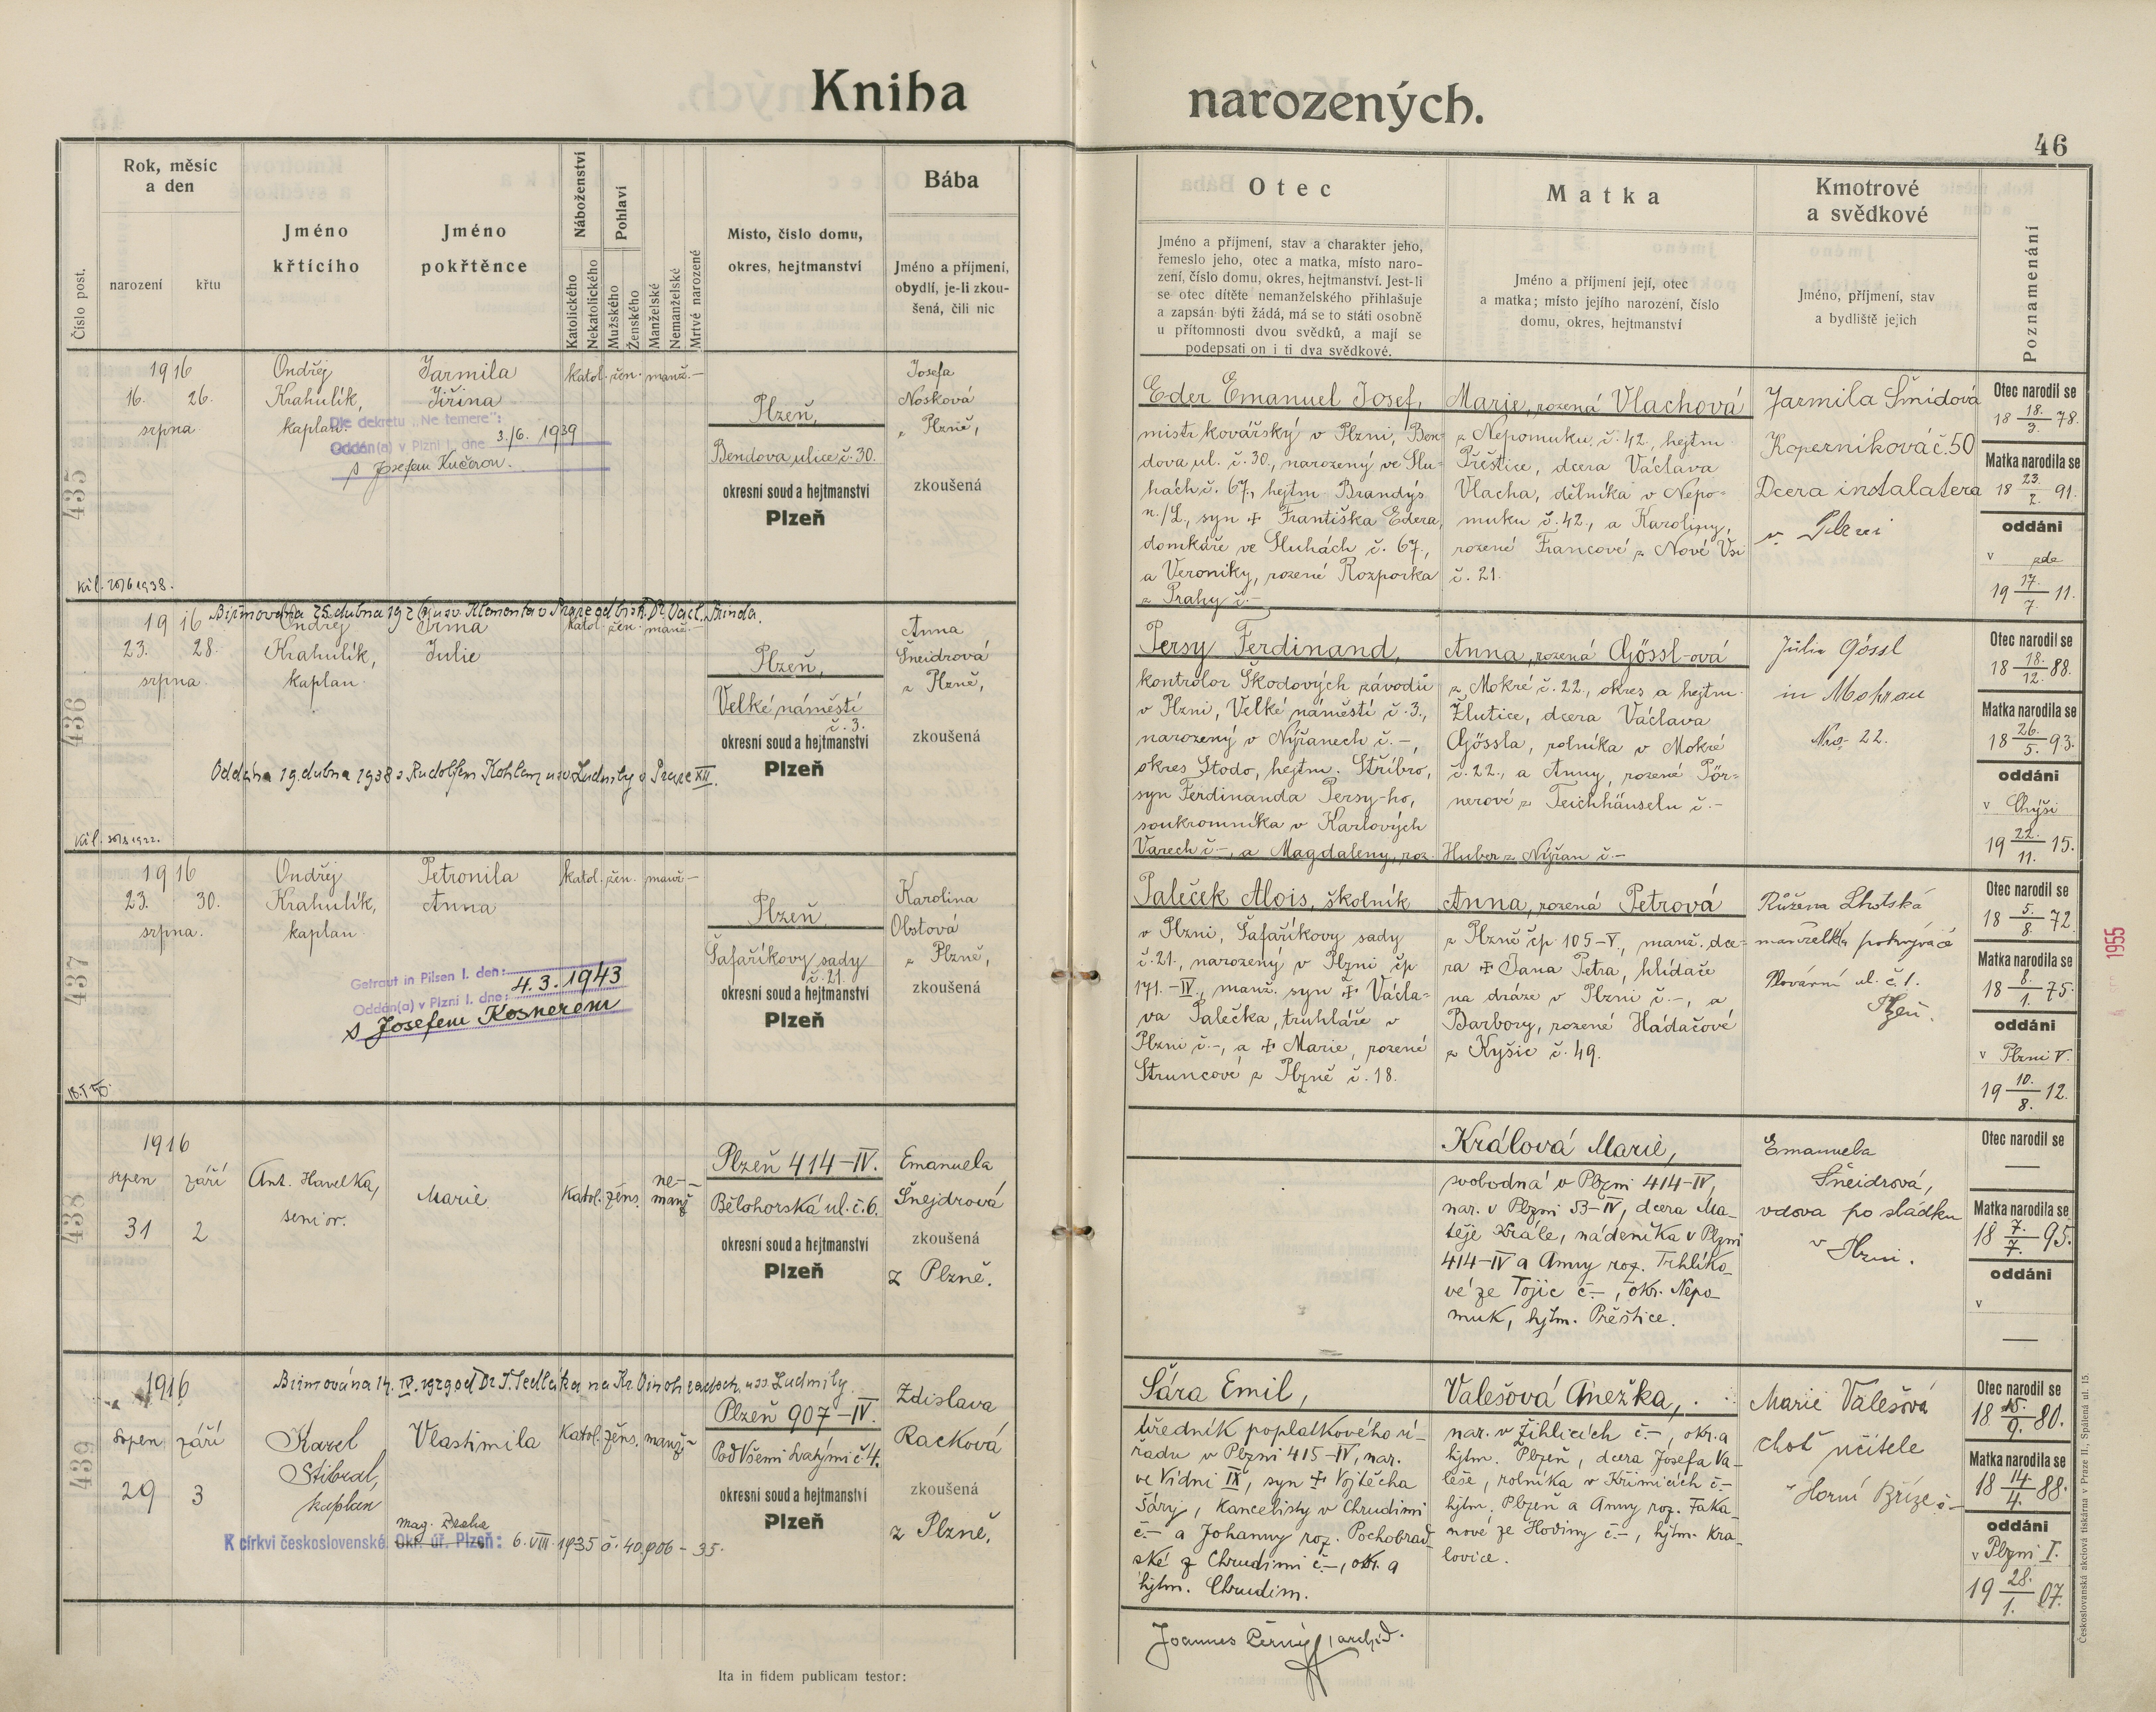 Kniha narozených.
46
Číslo post.
Rok, měsíc
a den
narození
křtu
Jméno
křtícího
Jméno
pokřtěnce
Náboženství
Katolického
Nekatolického
Pohlaví
Mužského
Ženského
Manželské
Nemanželské
Mrtvě narozené
Místo, číslo domu,
okres, hejtmanství
Bába
Jméno a příjmení,
obydlí, je-li zkou-
šená, čili nic
Otec
Jméno a příjmení, stav a charakter jeho,
řemeslo jeho, otec a matka, místo naro-
zení, číslo domu, okres, hejtmanství. Jest-li
se otec dítěte nemanželského přihlašuje
a zapsán býti žádá, má se to státi osobně
u přítomnosti dvou svědků, a mají se
podepsati on i ti dva svědkové.
Matka
Jméno a příjmení její, otec
a matka; místo jejího narození, číslo
domu, okres, hejtmanství
Kmotrové
a svědkové
Jméno, příjmení, stav
a bydliště jejich
Poznamenání
435
1916
16. 26.
srpna
Ondřej
Krahulík,
kaplan.
Jarmila
Jiřina
katol. žen. manž. —
Dle dekretu „Ne temere":
Oddán(a) v Plzni I. dne 3./6. 1939
s Josefem Kučerou.
Plzeň,
Bendova ulice č. 30.
okresní soud a hejtmanství
Plzeň
Josefa
Nosková
z Plzně,
zkoušená
Eder Emanuel Josef,
mistr kovářský v Plzni, Ben-
dova ul. č. 30., narozený ve Slu-
hách č. 67., hejtm. Brandýs
n./L., syn + Františka Edera,
domkáře ve Sluhách č. 67.,
a Veroniky, rozené Rozporka
z Prahy č. -
Marie, rozená Vlachová
z Nepomuku, č. 42., hejtm.
Přeštice, dcera Václava
Vlacha, dělníka v Nepo-
muku č. 42., a Karoliny,
rozené Francové z Nové Vsi
č. 21.
Jarmila Šmídová
Koperníková č. 50
Dcera instalatera
v Plzni
Otec narodil se
18 18./3. 78.
Matka narodila se
18 23./2. 91.
oddáni
v zde
19 17./7. 11.
436
Biřmována 25. dubna 1926 u sv. Klementa v Praze od bisk. Dr. Václ.
1916
23. 28.
srpna.
Ondřej
Krahulík,
kaplan.
Irma
Julie
katol. žen. manž. —
Oddána 19. dubna 1938 s Rudolfem Kohlem u sv. Ludmily v Praze XII.
Plzeň,
Velké náměstí
č. 3.
okresní soud a hejtmanství
Plzeň
Anna
Šneidrová
z Plzně,
zkoušená
Persy Ferdinand,
kontrolor Škodových závodů
v Plzni, Velké náměstí č. 3.,
narozený v Nýřanech č. -,
okres Stodo, hejtm. Stříbro,
syn Ferdinanda Persy-ho,
soukromníka v Karlových
Varech č. -, a Magdaleny, roz. Huber z Nýřan č. -
Anna, rozená Gössl-ová
z Mokré č. 22., okres a hejtm.
Žlutice, dcera Václava
Gössla, rolníka v Mokré
č. 22., a Anny, rozené Pör-
nerové z Teichhäuseln č. -
Julia Gössl
in Mokrau
Nro. 22.
Otec narodil se
18 18./12. 88.
Matka narodila se
18 26./5. 93.
oddáni
v Chýši
19 22./11. 15.
437
1916
23. 30.
srpna.
Ondřej
Krahulík,
kaplan.
Petronila
Anna
katol. žen. manž —
Getraut in Pilsen I. den:
Oddán(a) v Plzni I. dne: 4. 3. 1943
s Josefem Kosnerem
Plzeň
Šafaříkovy sady
č. 21.
okresní soud a hejtmanství
Plzeň
Karolina
Obstová
z Plzně,
zkoušená
Paleček Alois, školník
v Plzni, Šafaříkovy sady
č. 21., narozený v Plzni čp
171.-IV., manž. syn + Václa-
va Palečka, truhláře v
Plzni č. -, a + Marie, rozené
Struncové z Plzně č. 18.
Anna, rozená Petrová
z Plzně čp 105-V., manž. dce-
ra + Jana Petra, hlídače
na dráze v Plzni č. -, a
Barbory, rozené Hádačové
z Kyšic č. 49.
Růžena Lhotská
manželka pokrývače
Plovární ul. č. 1.
Plzeň.
Otec narodil se
18 5./8. 72
Matka narodila se
18 8./1. 75.
oddáni
v Plzni V.
19 10./8. 12.
438
1916
srpen září
31 2
Ant. Havelka,
senior.
Marie
Katol. žens. ne-
manž
Plzeň 414-IV.
Bělohorská ul. č. 6.
okresní soud a hejtmanství
Plzeň
Emanuela
Šnejdrová
zkoušená
z Plzně.
Králová Marie,
svobodná v Plzni 414-IV,
nar. v Plzni 53-IV, dcera Ma-
těje Krále, nádeníka v Plzni
414-IV a Anny roz. Trhlíko-
vé ze Tojic č. -, okr. Nepo-
muk, hjtm. Přeštice.
Emanuela
Šneidrová,
vdova po sládku
v Plzni.
Otec narodil se
—
Matka narodila se
18 7./7. 95.
oddáni
v
—
439
1916
srpen září
29 3
Karel
Stibral,
kaplan
Vlastimila
Katol. žens. manž. -
K církvi československé Okr. úř. Plzeň: mag. Praha 6. VIII. 1935 č. 40.906 - 35.
Plzeň 907-IV.
Pod Všemi svatými č. 4.
okresní soud a hejtmanství
Plzeň
Zdislava
Racková
zkoušená
z Plzně.
Šára Emil,
úředník poplatkového ú-
řadu v Plzni 415-IV, nar.
ve Vídni IX, syn + Vojtěcha
Šáry, kancelisty v Chrudimi
č. - a Johanny roz. Pochobrad-
ské z Chrudimi č. -, okr. a
hjtm. Chrudim.
Valešová Anežka,
nar. v Žihlicích č. -, okr. a
hjtm. Plzeň, dcera Josefa Va-
leše, rolníka v Křimicích č. -
hjtm. Plzeň a Anny roz. Faka-
nové ze Hodiny č. -, hjtm. Kra-
lovice.
Marie Valešová
choť učitele
v Horní Bříze č -
Otec narodil se
18 15./9. 80.
Matka narodila se
18 14/4. 88.
oddáni
v Plzni I.
19 28./1. 07.
Ita in fidem publicam testor:
Joannes Černý, archid.
Českoslovanská akciová tiskárna v Praze II., Spálená ul. 15.
1955